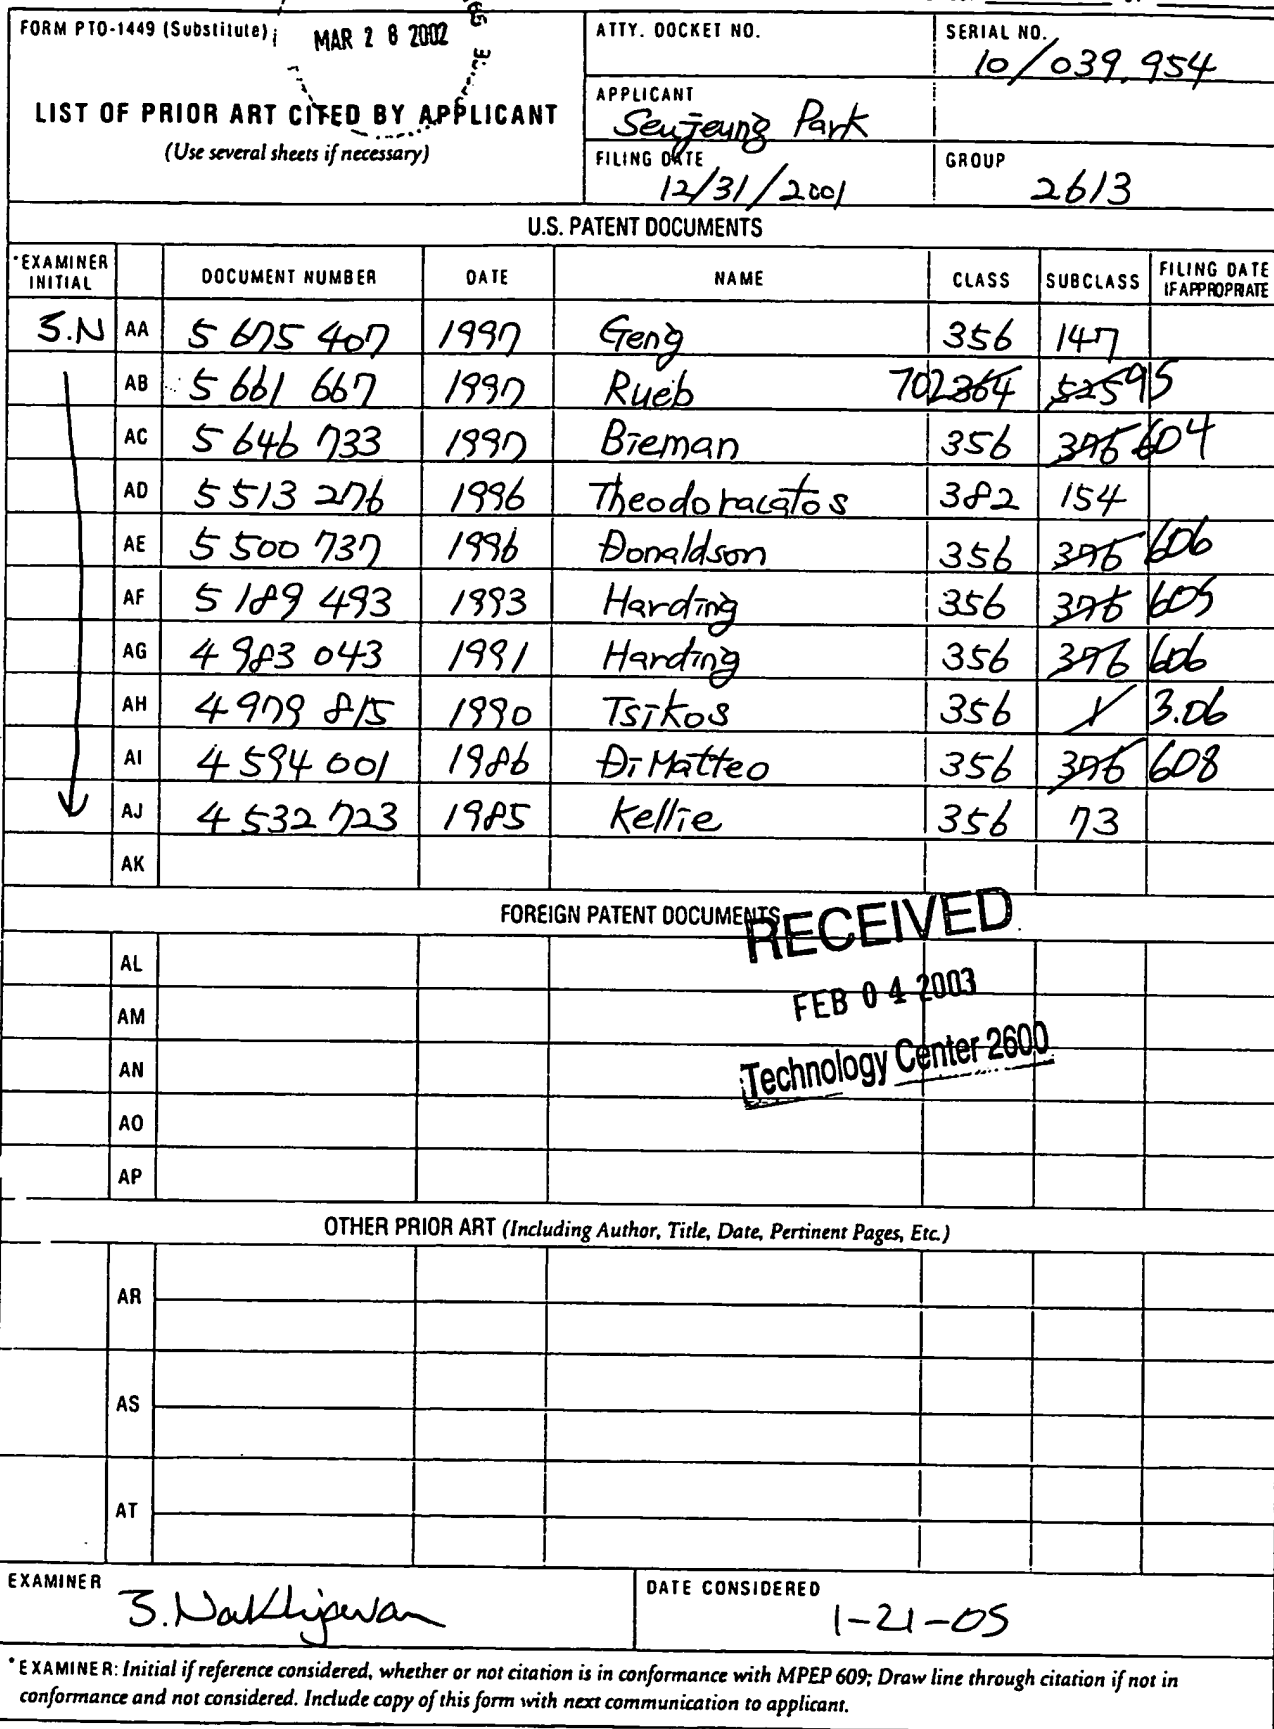 FORM PTO-1449 (Substitute)
MAR 28 2002
LIST OF PRIOR ART CITED BY APPLICANT
(Use several sheets if necessary)
ATTY. DOCKET NO.
SERIAL NO.
10/039,954
APPLICANT
Seujeung Park
FILING DATE
12/31/2001
GROUP
2613
U.S. PATENT DOCUMENTS
*EXAMINER INITIAL DOCUMENT NUMBER DATE NAME CLASS SUBCLASS FILING DATE IF APPROPRIATE
S.N AA 5 675 407 1997 Geng 356 147
AB 5 661 667 1997 Rueb 702 364 525 95
AC 5 646 733 1997 Bieman 356 376 604
AD 5 513 276 1996 Theodoracatos 382 154
AE 5 500 737 1996 Donaldson 356 376 606
AF 5 189 493 1993 Harding 356 376 605
AG 4 983 043 1991 Harding 356 376 606
AH 4 979 815 1990 Tsikos 356 1 3.06
AI 4 594 001 1986 DiMatteo 356 376 608
AJ 4 532 723 1985 Kellie 356 73
AK
FOREIGN PATENT DOCUMENTS
RECEIVED
FEB 04 2003
Technology Center 2600
AL
AM
AN
AO
AP
OTHER PRIOR ART (Including Author, Title, Date, Pertinent Pages, Etc.)
AR
AS
AT
EXAMINER
S. Nakhjavan
DATE CONSIDERED
1-21-05
*EXAMINER: Initial if reference considered, whether or not citation is in conformance with MPEP 609; Draw line through citation if not in
conformance and not considered. Include copy of this form with next communication to applicant.